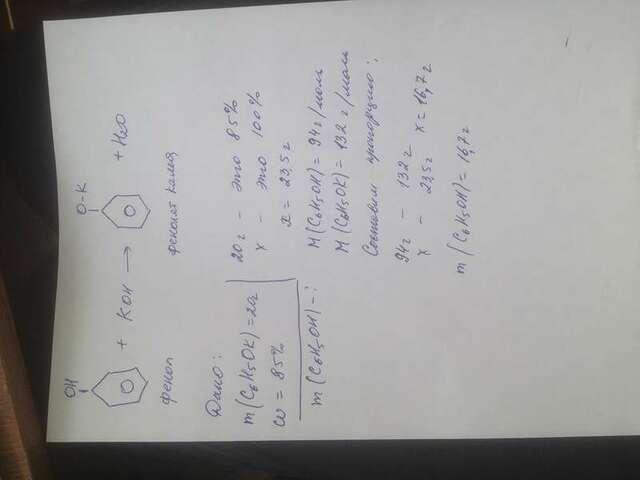 OH
O-K
+ KOH →
+ H2O
фенол
фенолят калия
Дано:
m(C6H5OK)=20г
ω = 85%
m(C6H5OH)-?
20г - это 85%
x - это 100%
x = 23,5г
M(C6H5OH)= 94г/моль
M(C6H5OK)= 132 г/моль
Составим пропорцию:
94г - 132г
x - 23,5г x=16,7г
m(C6H5OH)= 16,7г